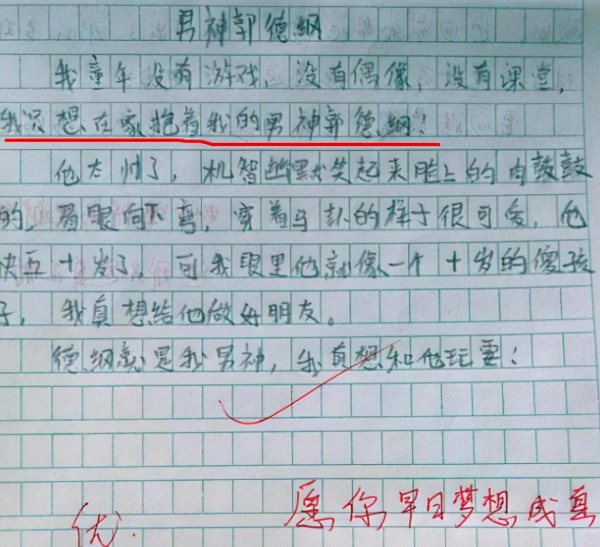 男神郭德纲
我童年没有游戏,没有偶像,没有课堂,
我只想在家抱着我的男神郭德纲!
他太帅了,机智幽默笑起来脸上的肉鼓鼓
的,眉眼向下弯,穿着马卦的样子很可爱,他
快五十岁了,可我眼里他就像一个十岁的傻孩
子,我真想给他做好朋友。
德纲就是我男神,我真想和他玩耍!
愿你早日梦想成真
优.